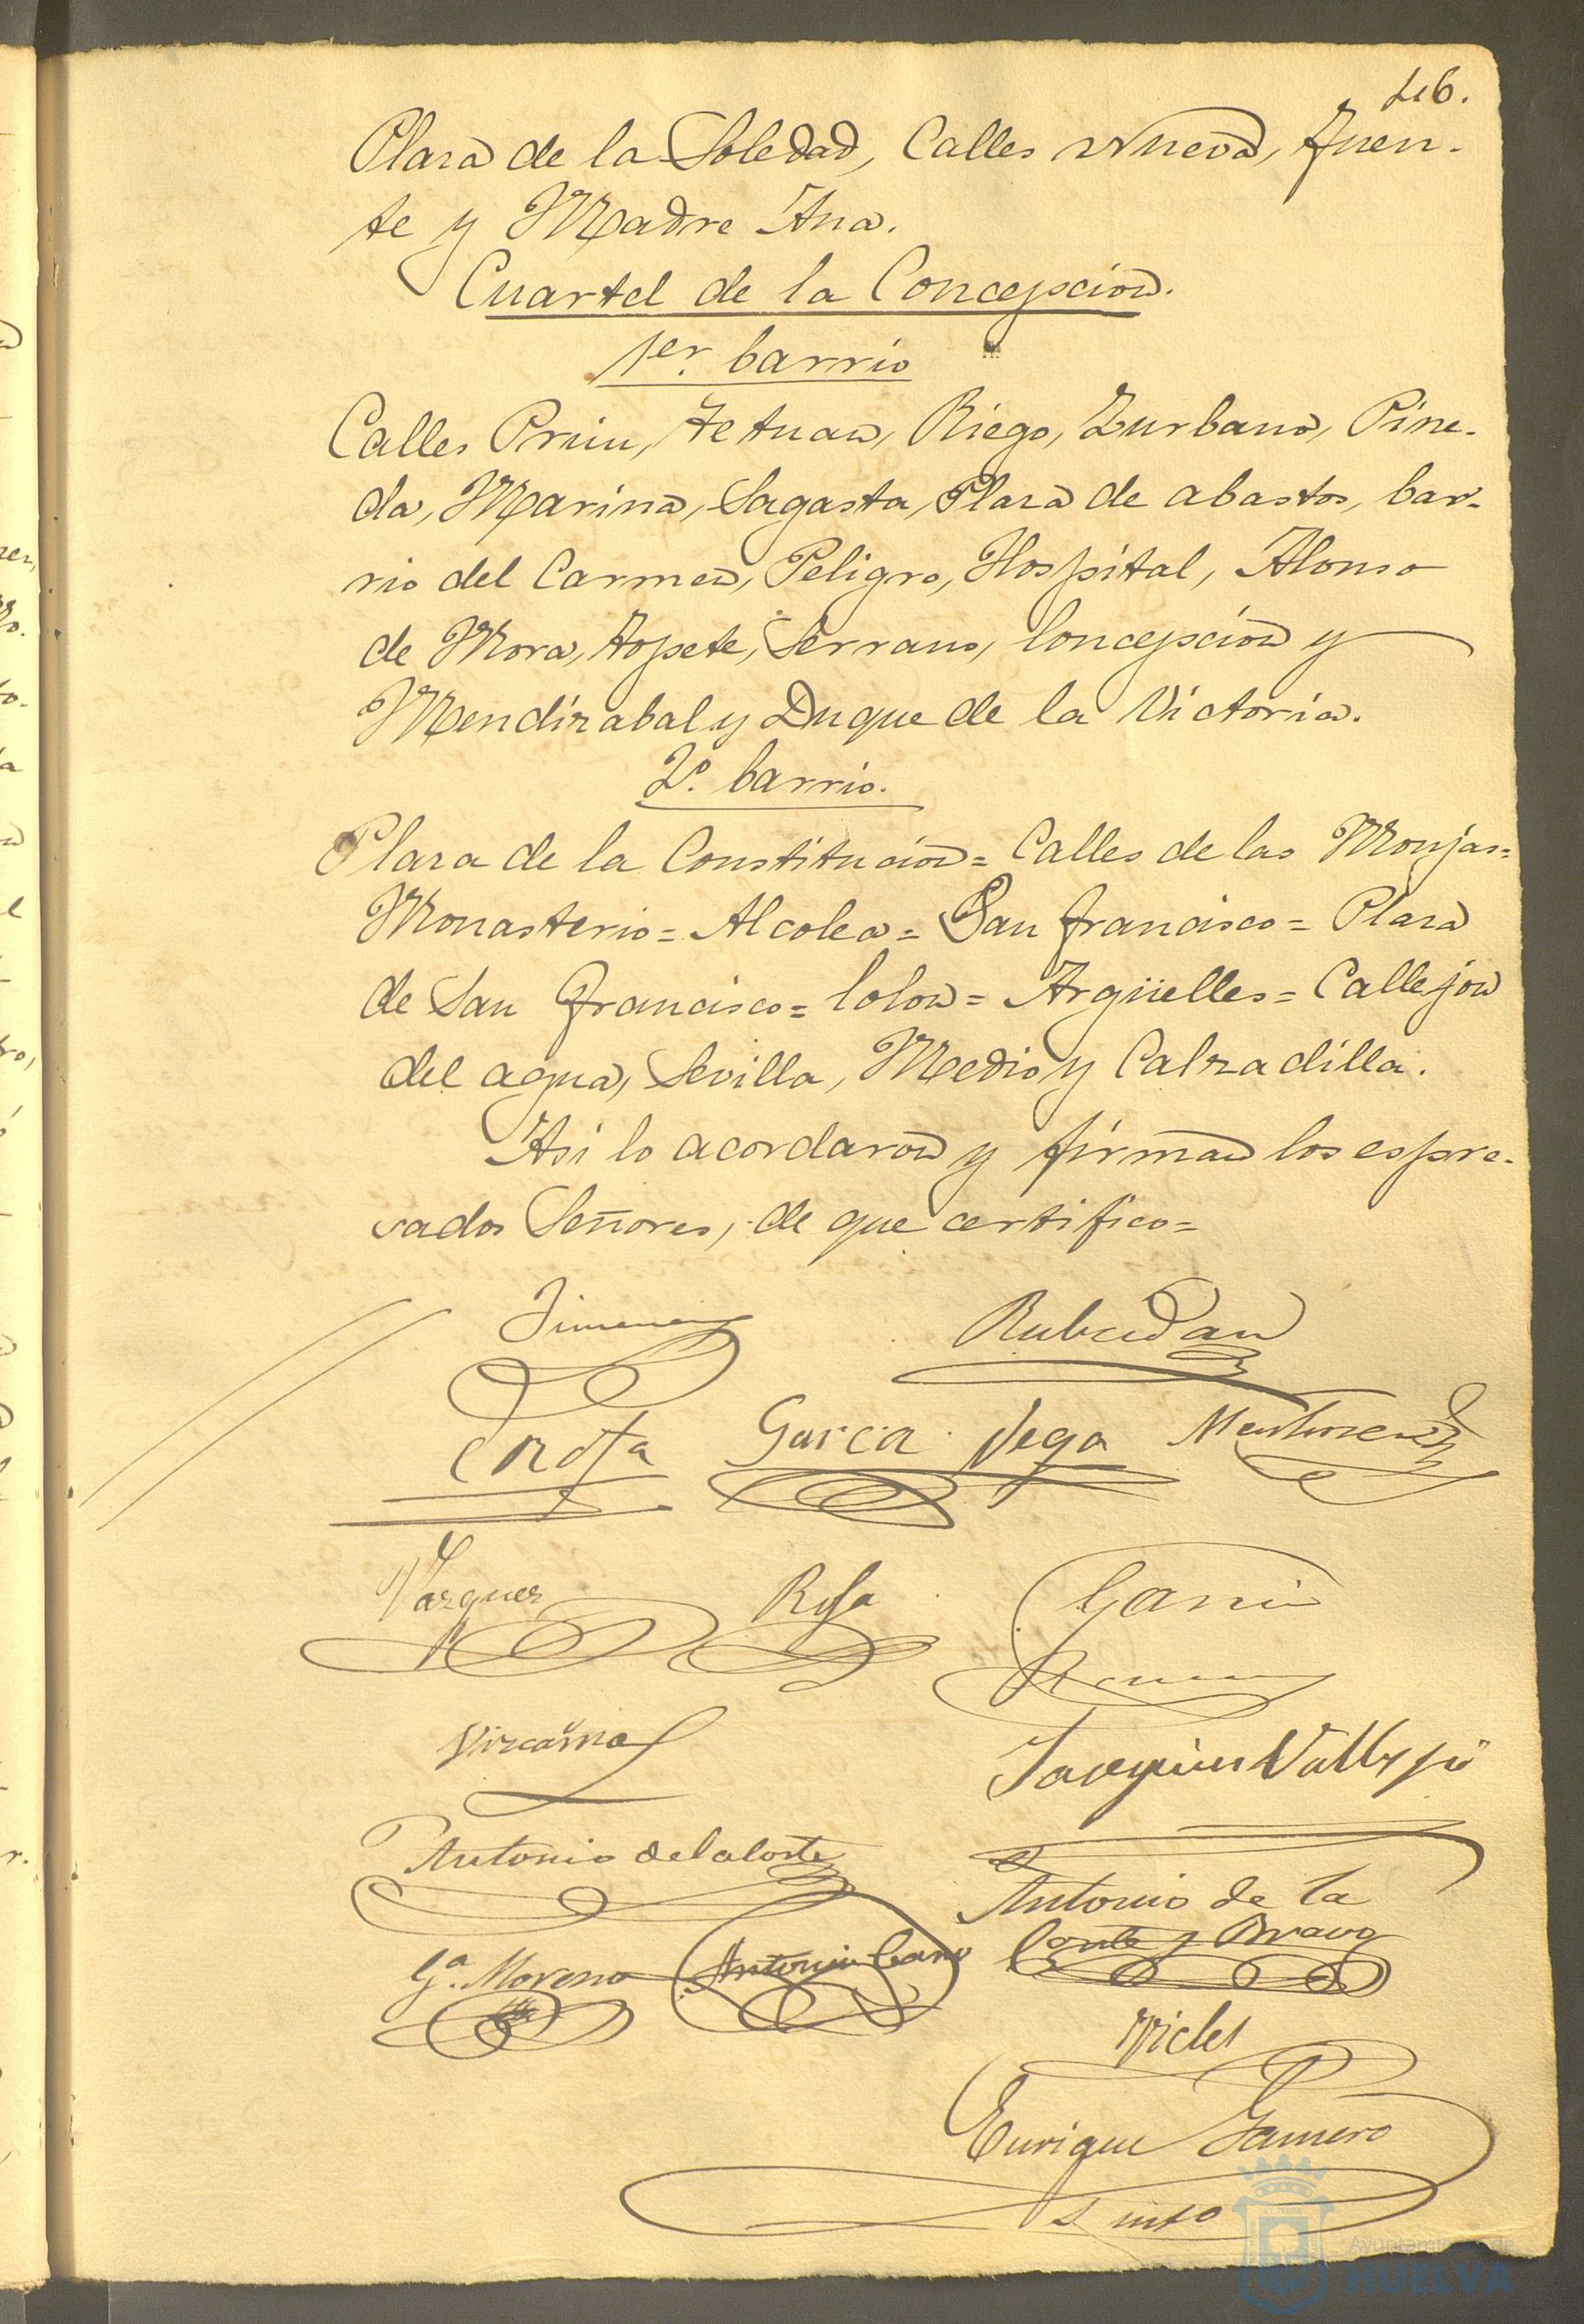 46.
Plaza de la Soledad, Calles Nueva, Fuen-
te y Madre Ana.
Cuartel de la Concepcion.
1er. barrio
Calles Prim, Tetuan, Riego, Zurbano, Pine-
da, Marina, Sagasta, Plaza de abastos, bar-
rio del Carmen, Peligro, Hospital, Alonso
de Mora, Topete, Serrano, Concepcion y
Mendizabal y Duque de la Victoria.
2º. barrio.
Plaza de la Constitucion = Calles de las Monjas =
Monasterio = Alcolea = San Francisco = Plaza
de San Francisco = Colon = Argüelles = Callejon
del agua, Sevilla, Medio y Calzadilla.
Asi lo acordaron y firman los espre-
sados Señores, de que certifico =
Jimenez
Garcia Vega
Vazquez
Vizcaino
Joaquin Vallejo
Antonio de la Corte
Antonio de la
Corte y Bravo
Ga. Moreno
Antonio Cano
Enrique Gamero
Ayuntamiento de
HUELVA